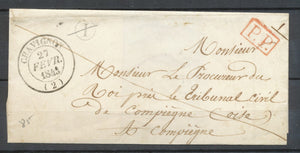 CHAVIGNON
27
FEVR.
(2)
P.P.
Monsieur
Monsieur Le Procureur du
Roi près le Tribunal Civil
de Compiègne (oise)
A Compiègne